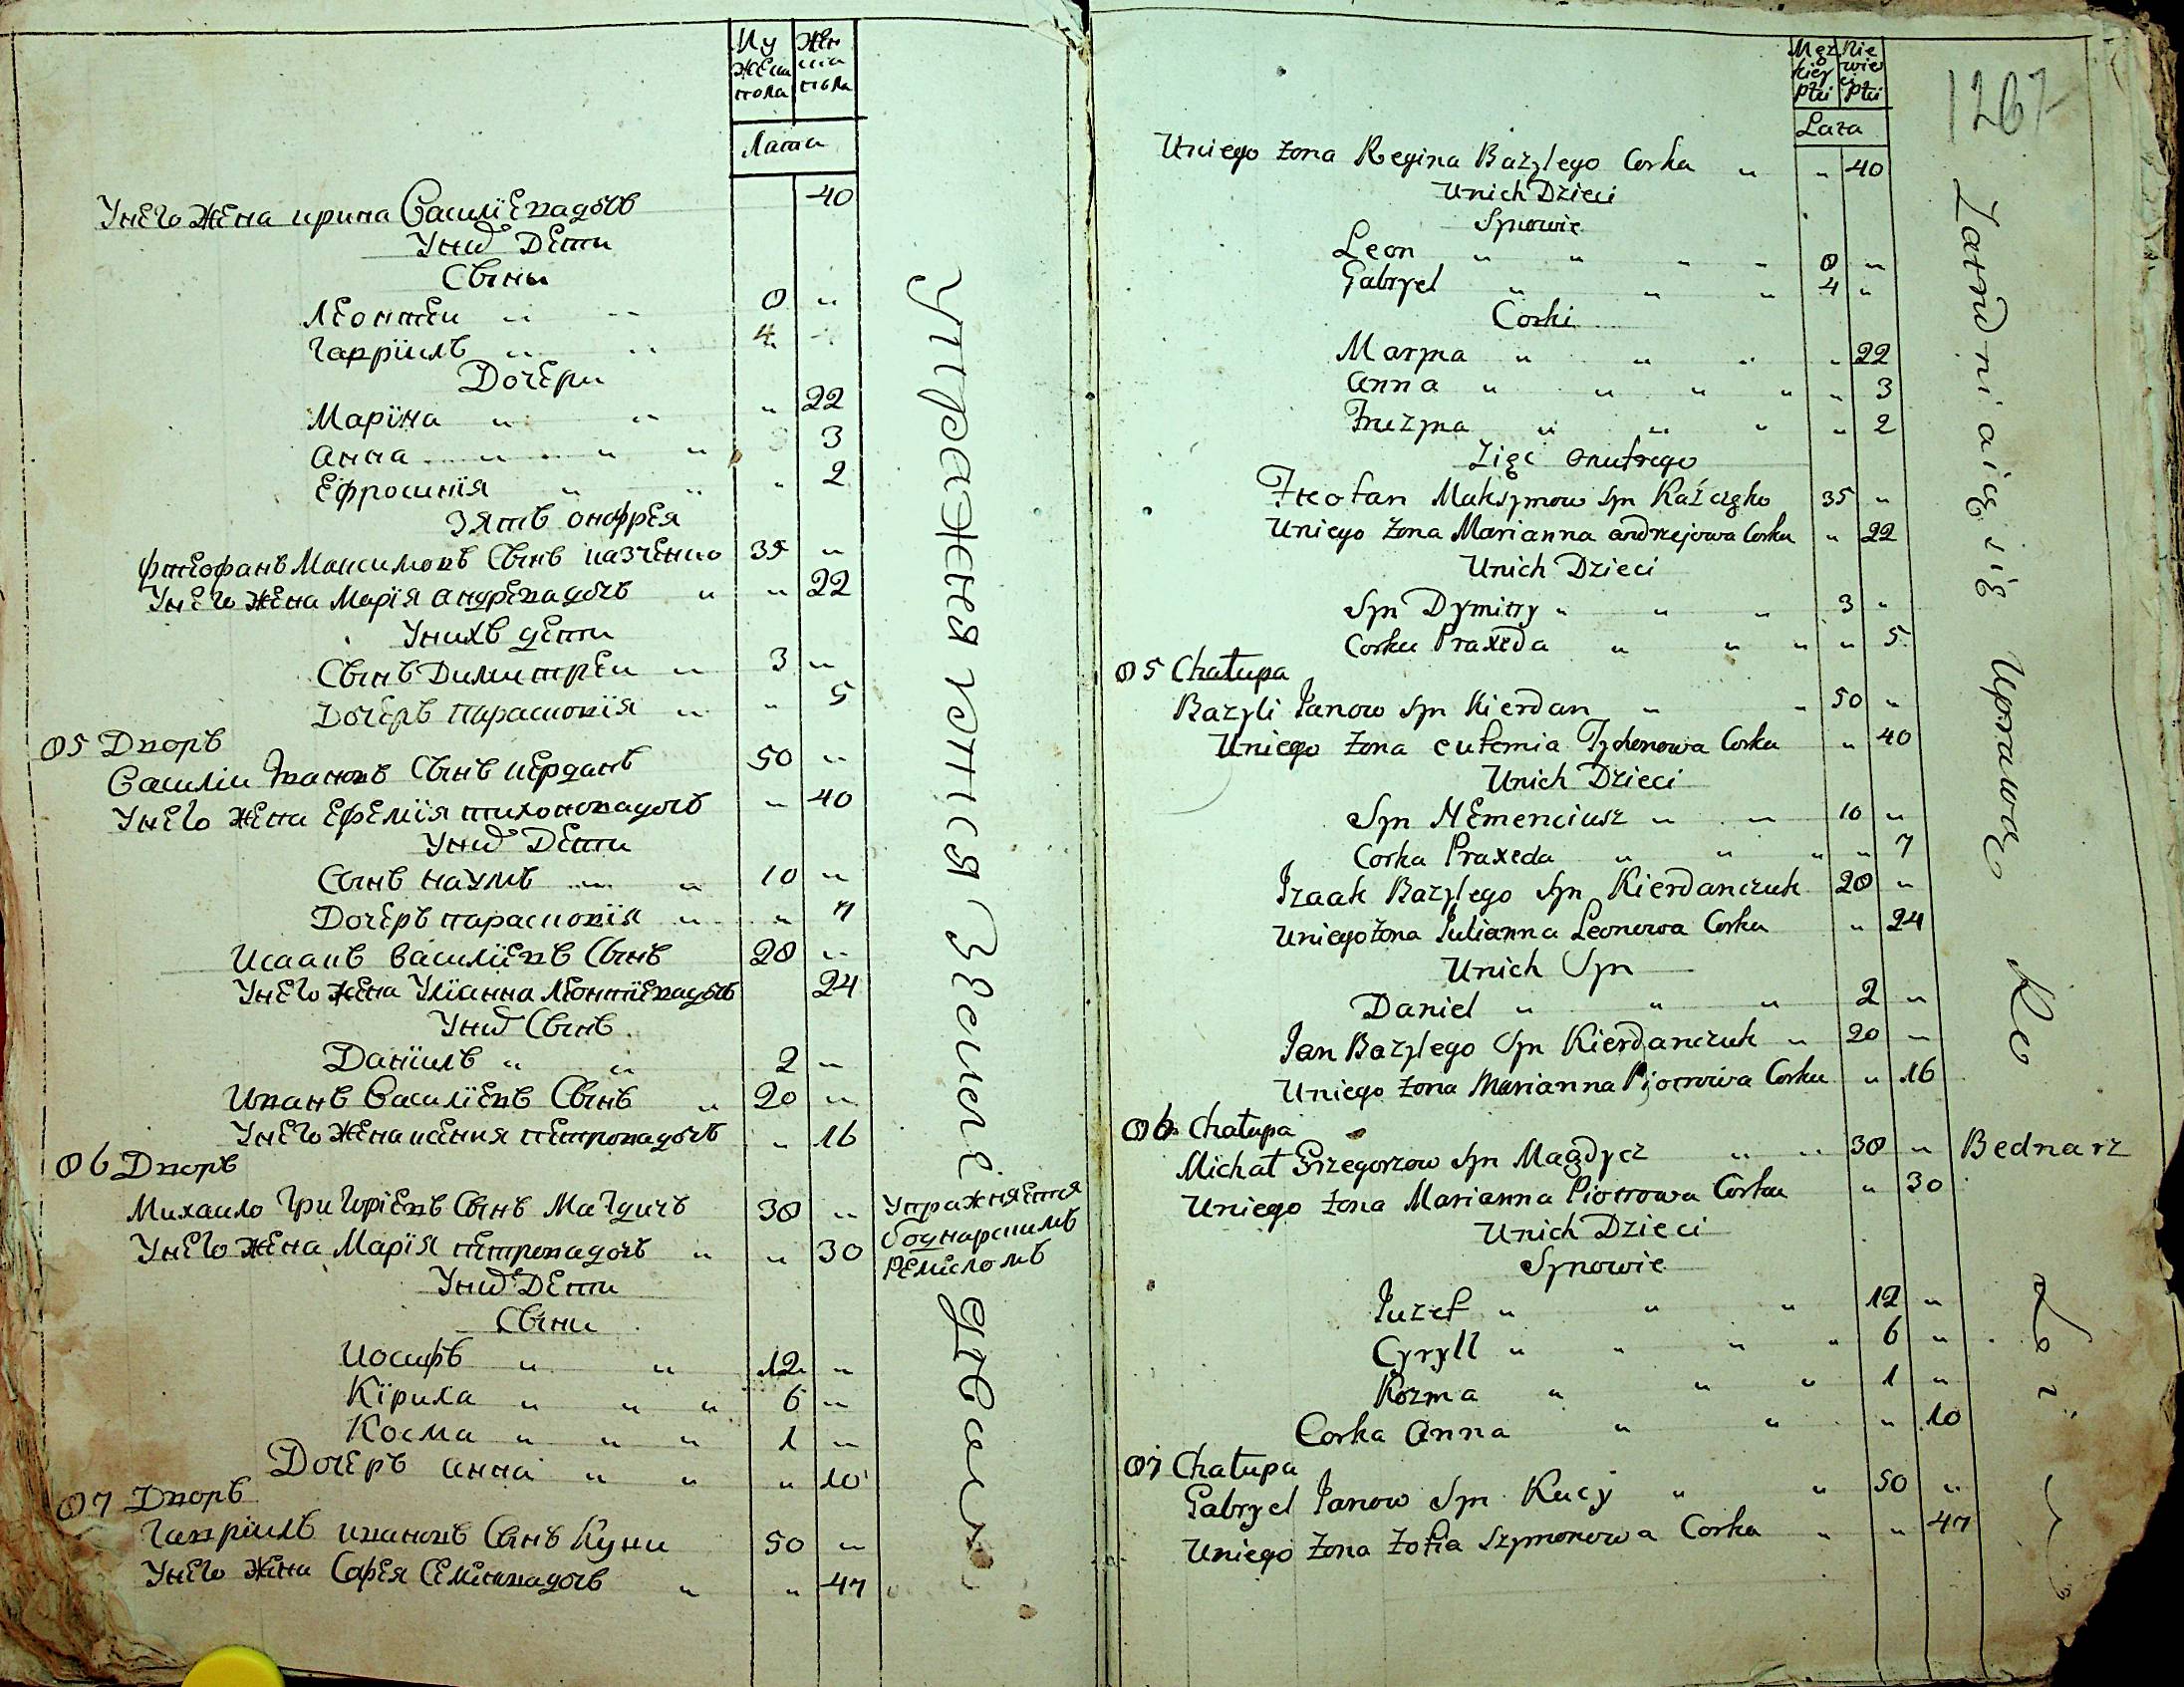 Му жеска пола
Жен ска пола
Лата
Унего Жена ирина Василїева дочь 40
Унихъ Дети
Сыны
Леонтей 8 "
Гавріилъ 4 "
Дочери
Марїна " 22
Анна " 3
Ефросинїя " 2
Зять Онофрея
Фтеофанъ Максимовъ Сынъ казченко 35 "
Унего Жена Марїя андреева дочь " 22
Унихъ дети
Сынъ Димитрей 3 "
Дочеръ парасковїя " 5
85 Дворъ
Василїй Ивановъ Сынъ керданъ 50 "
Унего жена Ефемїя тихонова дочь " 40
Унихъ Дети
Сынъ наумъ 10 "
Дочеръ парасковїя " 7
Исаакъ василїевъ Сынъ 28 "
Унего жена Улїанна леонтїева дочь 24
Унихъ Сынъ
Данїилъ 2 "
Иванъ Василїевъ Сынъ 20 "
Унего Жена ксения петрова дочь " 16
86 Дворъ
Михайло Григорїевъ Сынъ Магдичъ 38 "
Унего жена Марїя петрова дочь " 30
Унихъ Дети
Сыни
Иосифъ 12 "
Кїрила 6 "
Косма 1 "
Дочеръ анна " 10
87 Дворъ
Гаврїилъ ивановъ Сынъ Куци 50 "
Унего жена Софея Семенова дочь " 47
упражняются Земледѣлием
Упражняется
боднарскимъ
Ремисломъ
Męz kiey płci
Nie wie ści płci
Lata
1267
Uniego żona Regina Bazylego Corka " 40
Unich Dzieci
Synowie
Leon 8 "
Gabryel 4 "
Corki
Maryna " 22
Anna " 3
Fruzyna " 2
Zięć Onufrego
Fteofan Maksymow Syn Kaźczęko 35 "
Uniego żona Marianna andrzejowa Corka " 22
Unich Dzieci
Syn Dymitry 3 "
Corka Praxeda " 5
85 Chałupa
Bazyli Janow Syn Kierdan 50 "
Uniego żona eufemia Tychonowa Corka " 40
Unich Dzieci
Syn Nemenciusz 10 "
Corka Praxeda " 7
Izaak Bazylego Syn Kierdanczuk 28 "
Uniego żona Julianna Leonowa Corka " 24
Unich Syn
Daniel 2 "
Jan Bazylego Syn Kierdanczuk 20 "
Uniego żona Marianna Piotrowa Corka " 16
86 Chałupa
Michał Grzegorzow Syn Magdycz 38 " Bednarz
Uniego żona Marianna Piotrowa Corka " 30
Unich Dzieci
Synowie
Juzef 12 "
Cyryll 6 "
Kozma 1 "
Corka Anna " 10
87 Chałupa
Gabryel Janow Syn Kucy 50 "
Uniego żona Zofia Szymonowa Corka " 47
Zatrudniaią się Uprawą Ro li